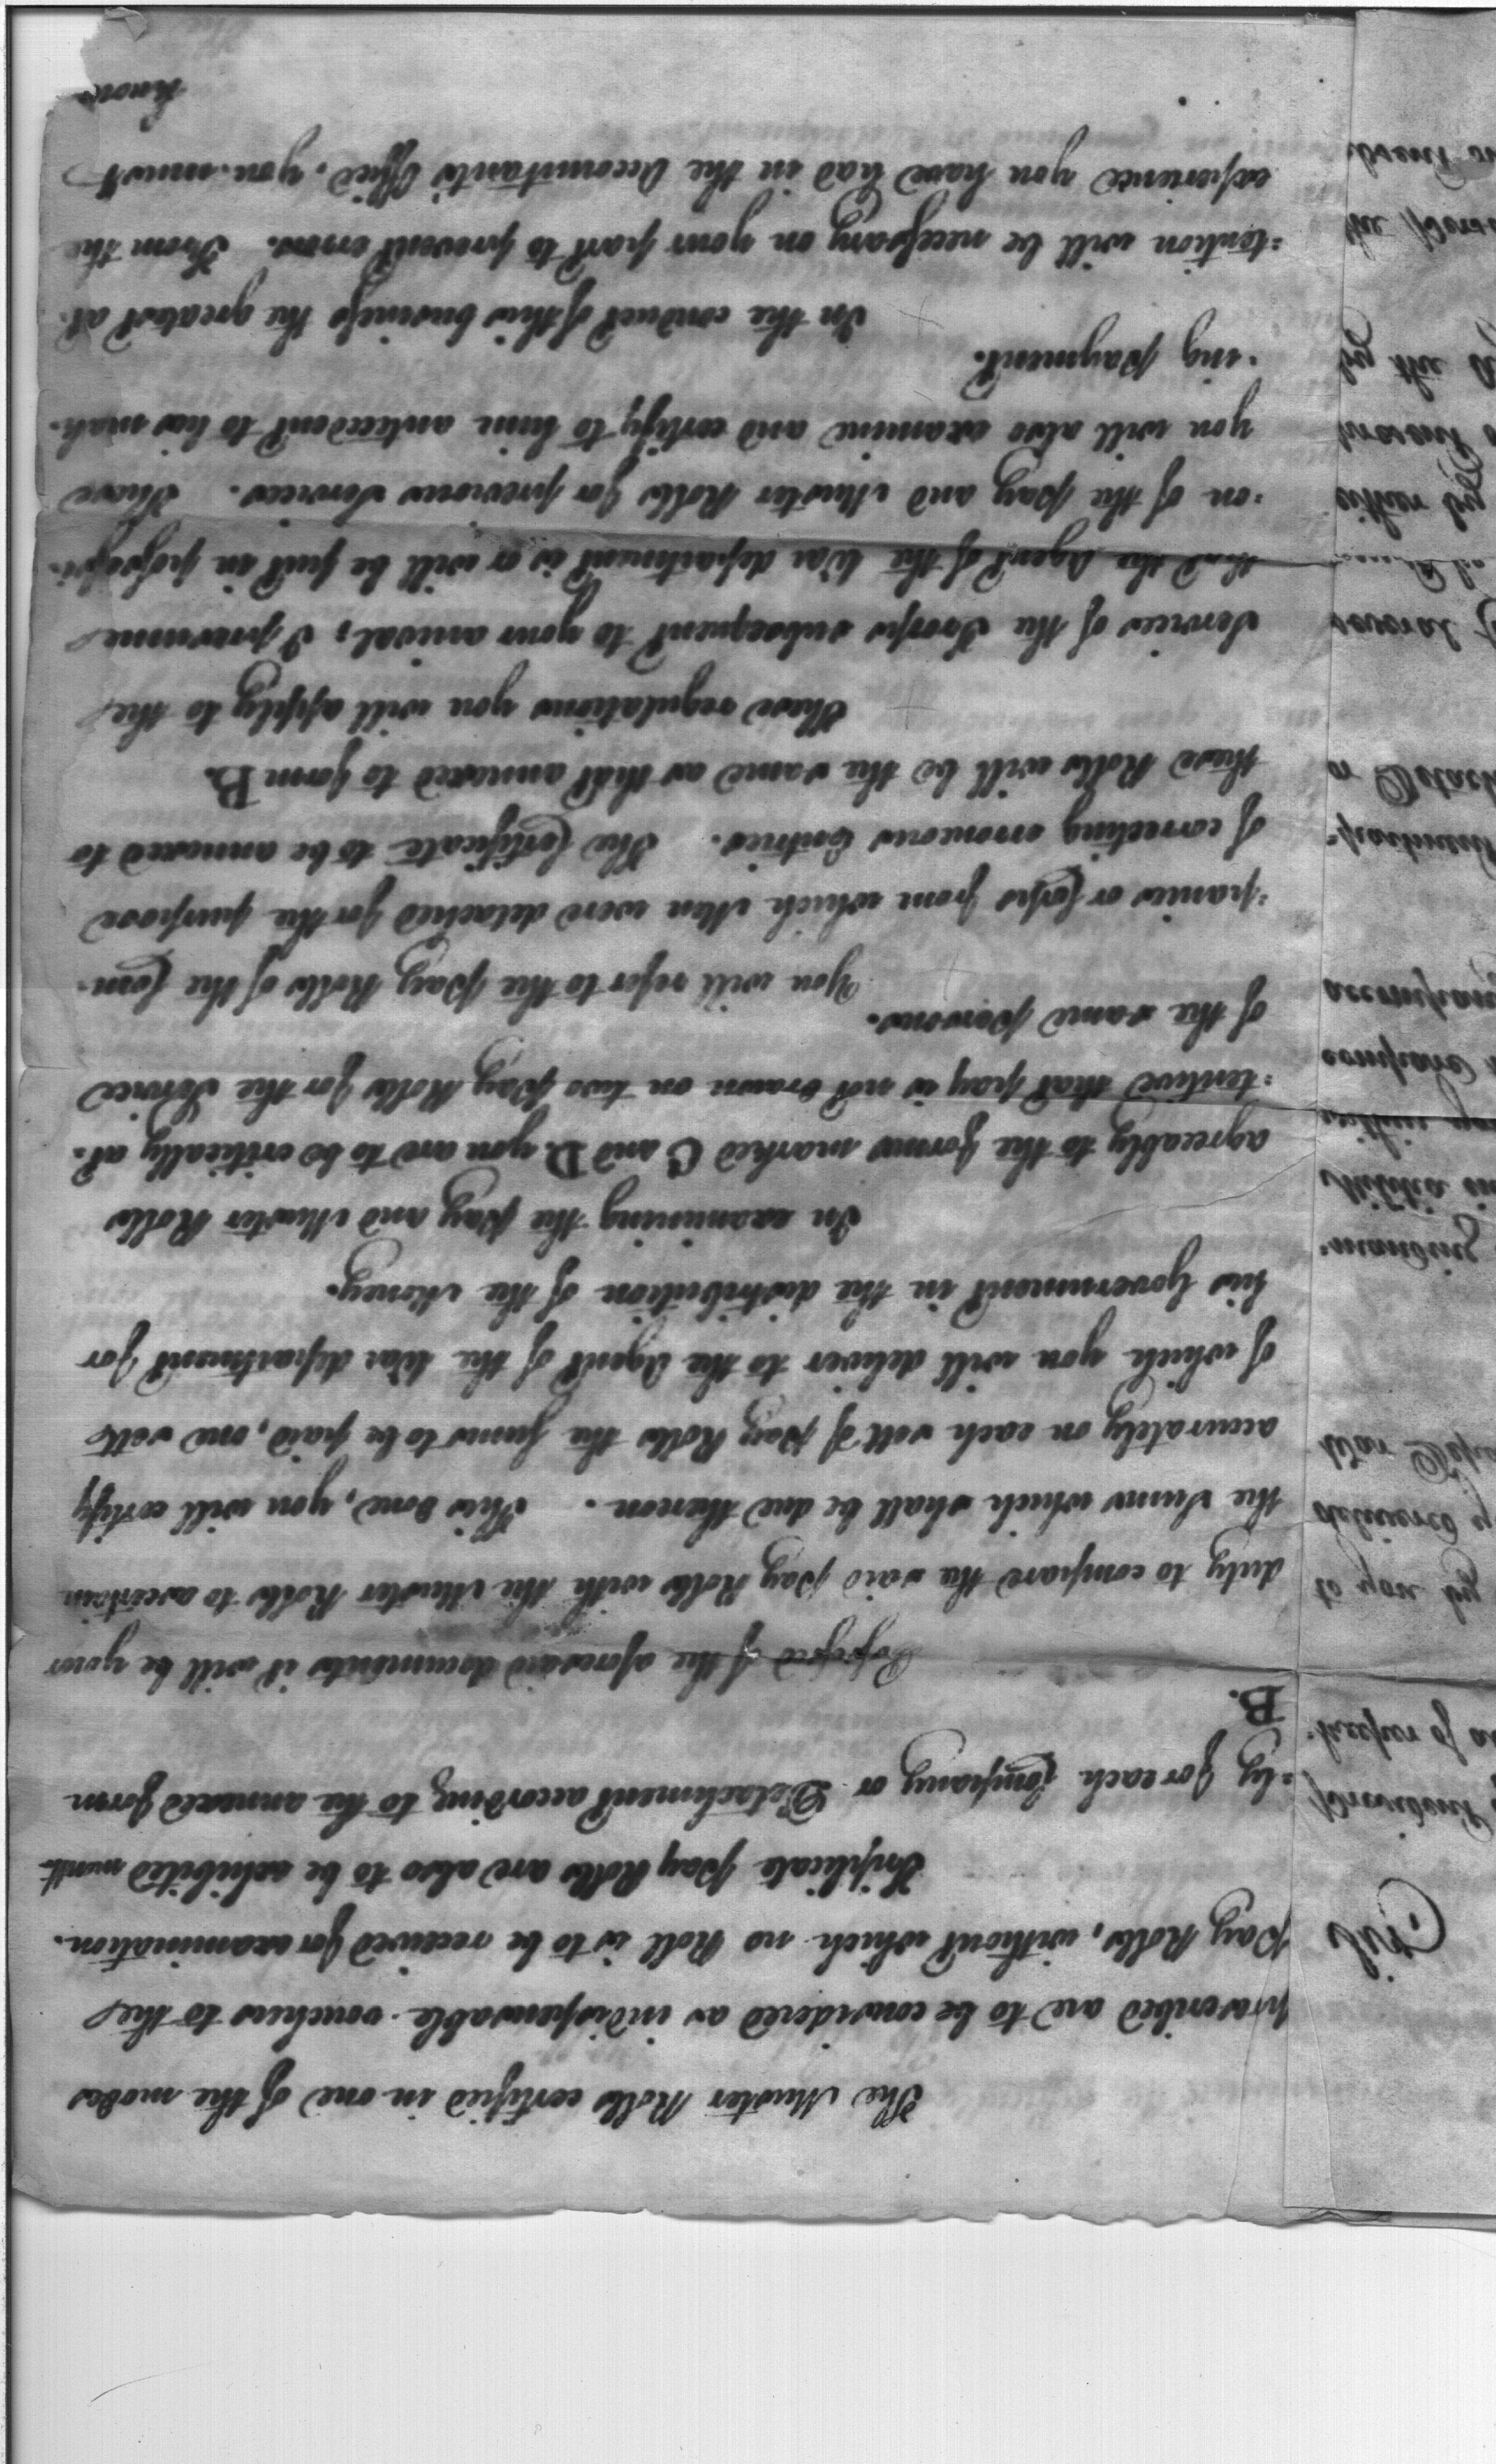 The Muster Rolls certified in one of the modes
prescribed are to be considered as indispensable vouchers to the
Pay Rolls, without which no Roll is to be received for examination.
Triplicate Pay Rolls are also to be exhibited month
=ly for each Company or Detachment according to the annexed form
B.
Possessed of the aforesaid documents it will be your
duty to compare the said Pay Rolls with the Muster Rolls to ascertain
the Sums which shall be due thereon. This done, you will certify
accurately on each sett of Pay Rolls the Sums to be paid, one sett
of which you will deliver to the Agent of the War department for
his Government in the distribution of the Money.
In examining the Pay and Muster Rolls
agreeably to the forms marked C and D. you are to be critically at-
=tentive that pay is not drawn on two Pay Rolls for the Service
of the same persons.
You will refer to the Pay Rolls of the Com-
=panies or Corps from which Men were detached for the purpose
of correcting erroneous Entries. The Certificate to be annexed to
these Rolls will be the same as that annexed to form B.
These regulations you will apply to the
Services of the Troops subsequent to your arrival; I presume
that the Agent of the War department is or will be put in possessi-
-on of the Pay and Muster Rolls for previous Services. These
you will also examine and certify to him antecedent to his mak-
-ing payment.
In the conduct of this business the greatest at-
=tention will be necessary on your part to prevent errors. From the
experience you have had in the Accountants Office, you must
know
Sir,
President
keeper of
to you by
delivered
War Depa
=manding
Militia
within you
compare
accompany
partment
or Detach
several
either by
prevent
by the
the Perso